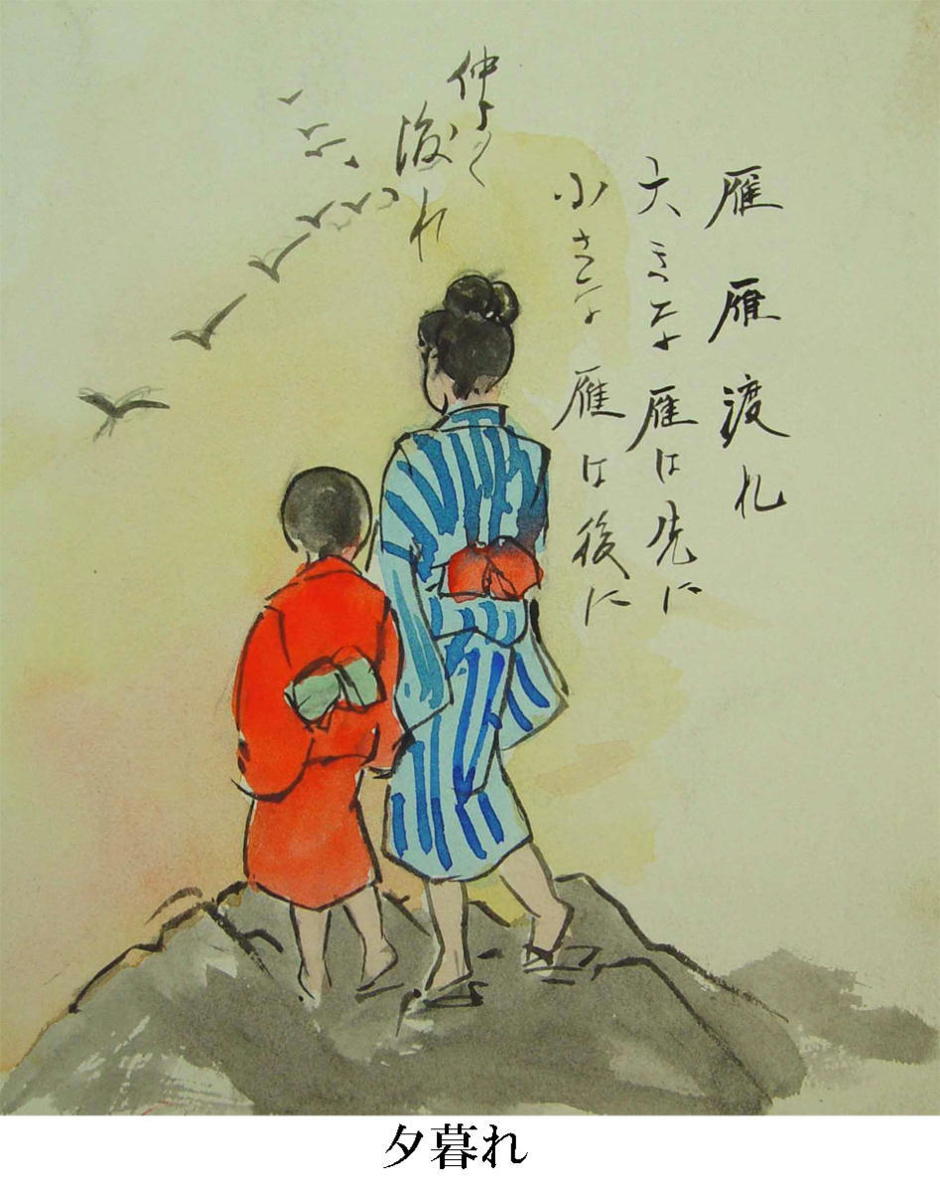 雁雁渡れ
大きな雁は先に
小さな雁は後に
仲よく
渡れ
夕暮れ